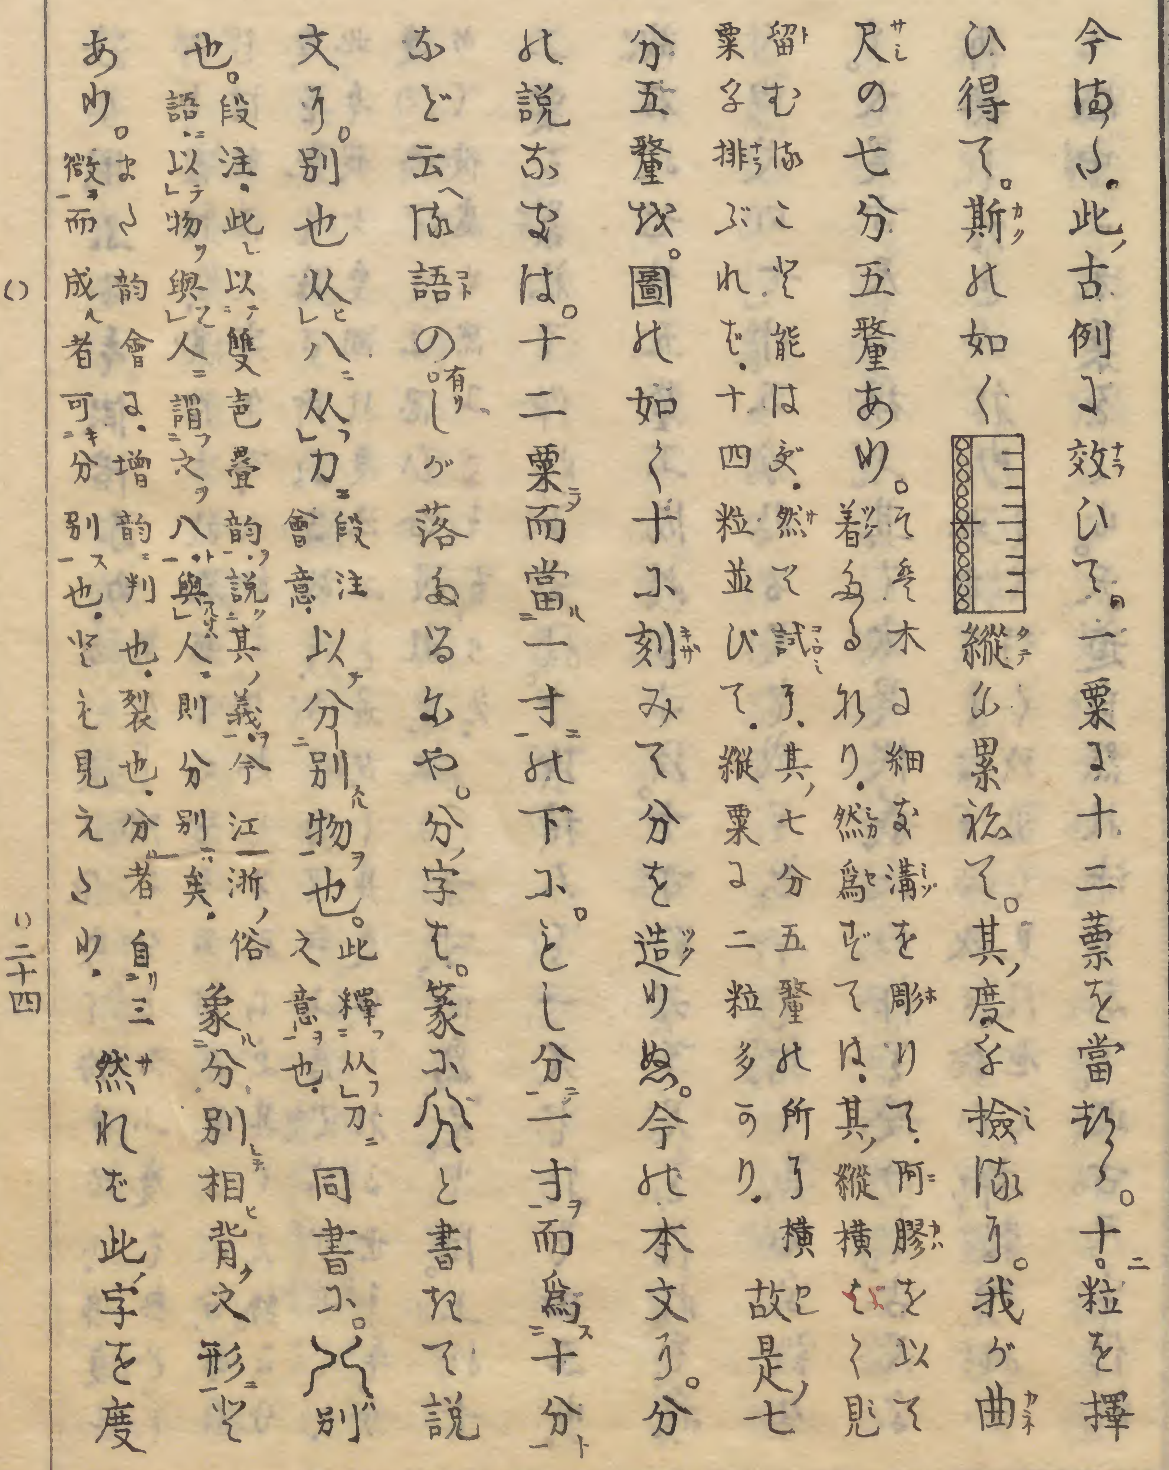 今はた。此、古例に效ひて。一粟に十二䅺を當
ひ得て。斯の如く縱に累ねて。其、度を撿るに。我が曲
尺の七分五釐あり。そは木に細き溝を彫りて。阿膠を以て
着たるなり。然爲ずては。其、縱横よく見
留むること能はず。然て試に。其、七分五釐の所に横
粟を排ぶれば。十四粒並びて。縱粟に二粒多かり。故是、七
分五釐を。圖の如く十に刻みて分を造りぬ。今の本文に。分
の説なきは。十二粟而當一寸の下に。もし分一寸而爲十分
など云へる語の有しが落たるにや。分字は。篆に分と書きて説
文に。別也从八从刀段注會意。以分別物也。此釋从刀之意也。同書に。八別
也。段注。此以雙聲疊韵説其義今江浙俗語以物與人謂之八與人則分別矣。象分別相背之形と
あり。また韵會に。增韵判也。裂也。分者自三微而成者可分別也。と見えたり。然れば此字を度
二十四